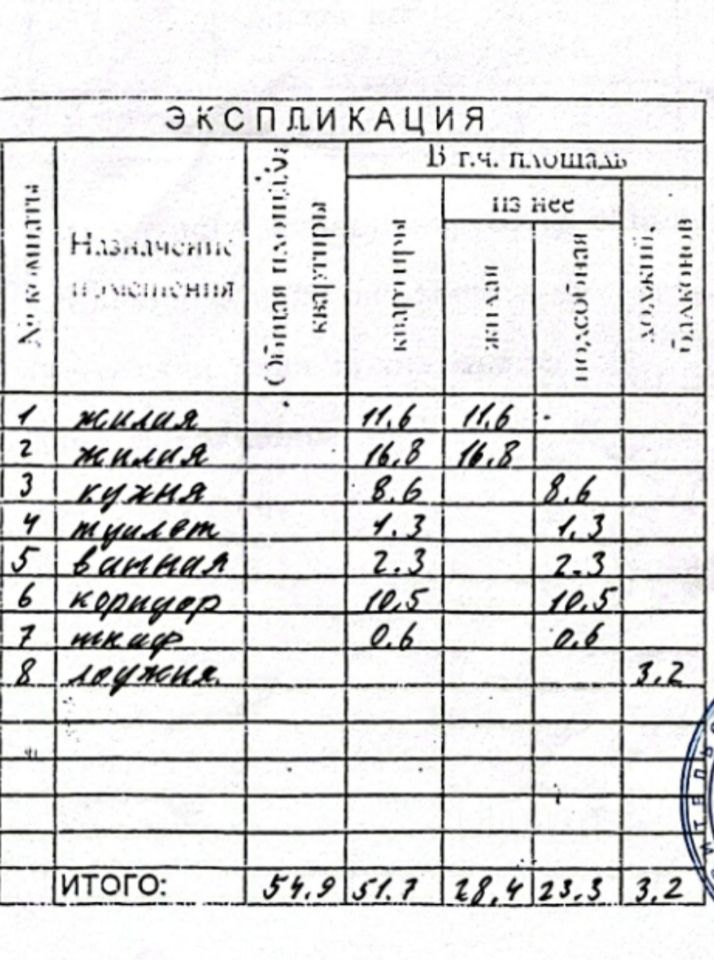 ЭКСПЛИКАЦИЯ
№ комнаты
Назначение помещения
Общая площадь квартиры
В т.ч. площадь
квартиры
из нее
жилая
подсобная
лоджии, балконов
1 жилая 11.6 11.6
2 жилая 16.8 16.8
3 кухня 8.6 8.6
4 туалет 1.3 1.3
5 ванная 2.3 2.3
6 коридор 10.5 10.5
7 шкаф 0.6 0.6
8 лоджия 3.2
ИТОГО: 54.9 51.7 28,4 23.3 3,2